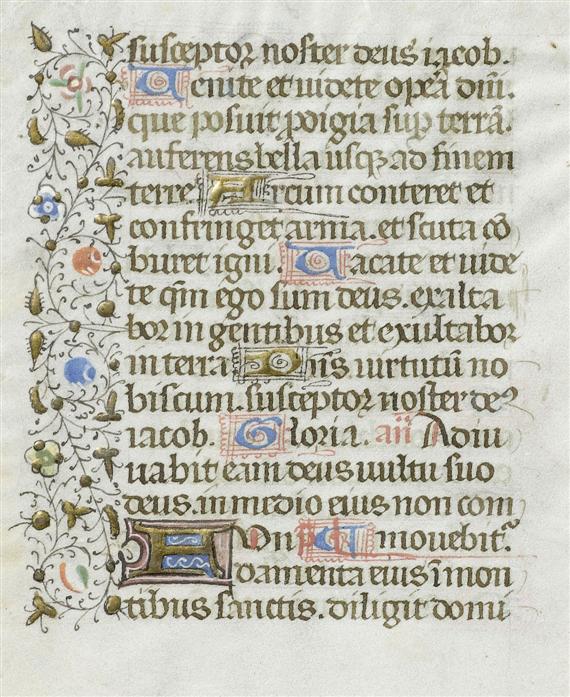 susceptor noster deus iacob.
Uenite et uidete opera dm̄i.
que posuit ꝓdigia suꝑ terrā.
auferens bella usqꝫ ad finem
terre. Arcum conteret et
confringet arma. et scuta cō
buret igni. Uacate et uide
te qm̄ ego sum deus. exalta
bor in gentibus et exultabor
in terra Dn̄s uirtutū no
biscum. susceptor noster deꝰ
iacob. Gloria. añ Adiu
uabit eam deus uultu suo
deus. in medio eius non com
Fun ps mouebit᷑.
damenta eius ī mon
tibus sanctis. diligit domi